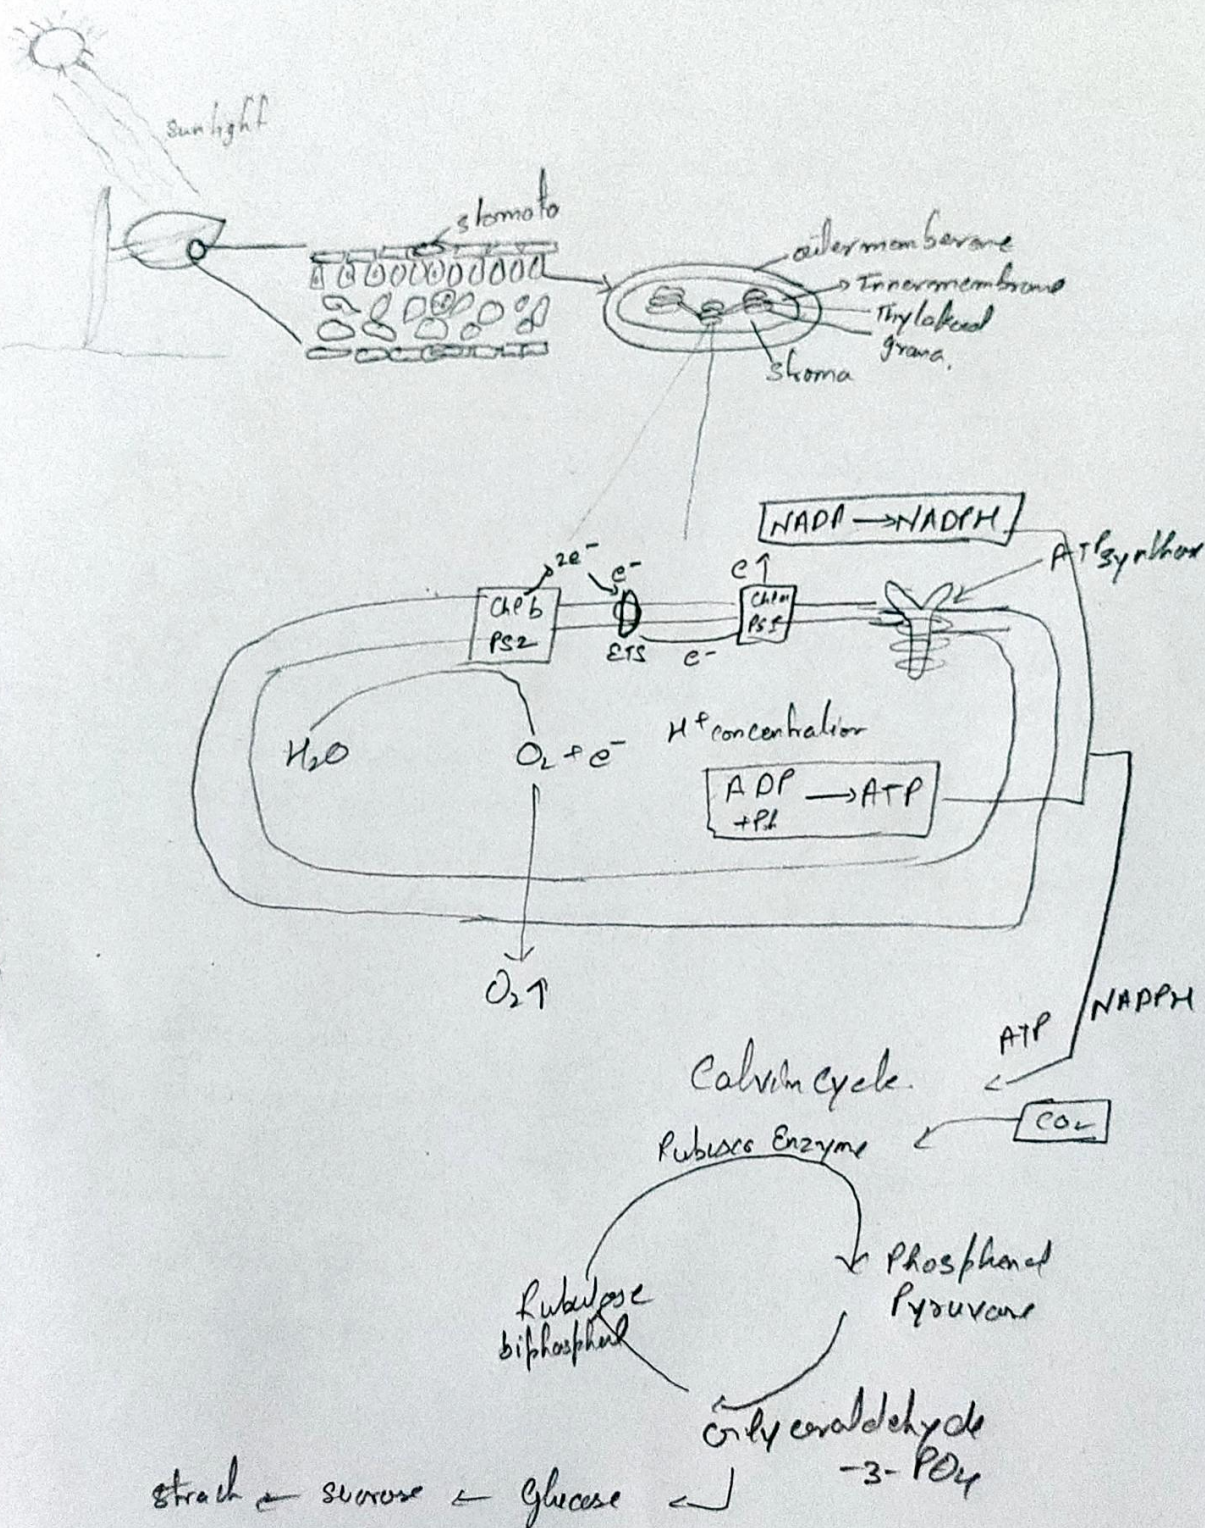 sunlight
stomoto
outermemberane
Innermembrane
Thylakoid
grana,
stroma
NADP → NADPH
ATP synthase
2e⁻
e⁻
e↑
Chl b
PS2
ETS
e⁻
H₂O
O₂ + e⁻
H⁺ concentration
ADP → ATP
O₂↑
NADPH
ATP
Calvin Cycle.
CO₂
Rubisco Enzyme
Pyruvane
Glyceraldehyde
-3- PO₄
strach ← sucrose ← Glucose ←